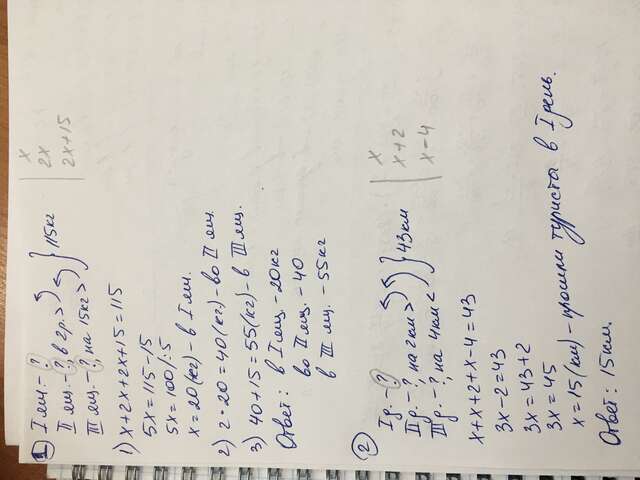 1 I ящ. - ? | x
II ящ. - ?, в 2р. > } 115кг | 2x
III ящ. - ?, на 15кг > | 2x+15
1) x+2x+2x+15=115
5x=115-15
5x=100 /:5
x=20(кг) - в I ящ.
2) 2·20=40(кг.) - во II ящ.
3) 40+15=55(кг) - в III ящ.
Ответ: в I ящ - 20кг
во II ящ. - 40
в III ящ. - 55кг
2 I д. - ? | x
II д. - ?, на 2км > } 43км | x+2
III д. - ?, на 4км < | x-4
x+x+2+x-4=43
3x-2=43
3x=43+2
3x=45
x=15(км) - прошли туристы в I день.
Ответ: 15км.